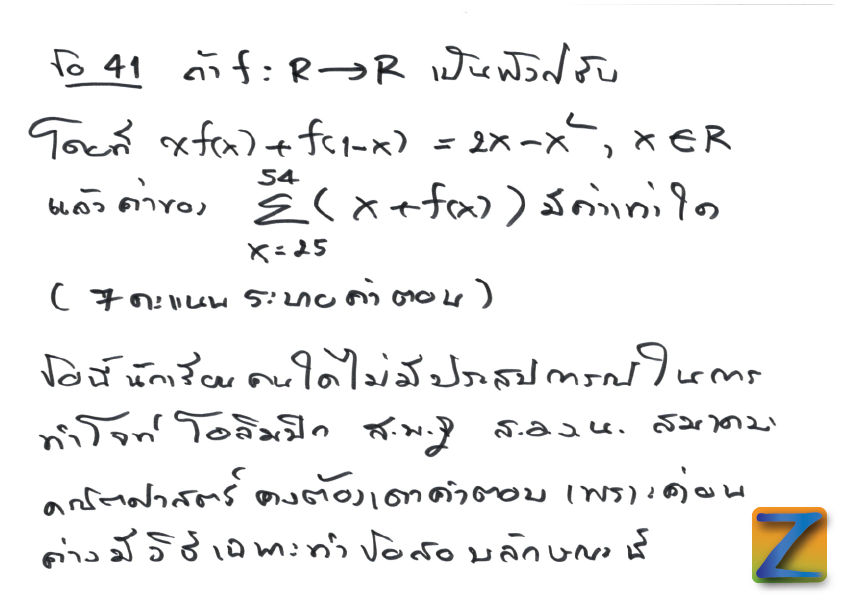 ข้อ 41 ถ้า f : R → R เป็นฟังก์ชัน
โดยที่ xf(x) + f(1-x) = 2x - x², x ∈ R
แล้วค่าของ \sum_{x=25}^{54} (x + f(x)) มีค่าเท่าใด
(7 คะแนน ระบายคำตอบ)
ข้อนี้นักเรียนคนใดไม่มีประสบการณ์ในการ
ทำโจทย์โอลิมปิก ส.พ.ฐ ส.อ.ว.น. สมาคม
คณิตศาสตร์ คงต้องเดาคำตอบ เพราะค่อน
ข้างมีวิธีเฉพาะทำข้อสอบลักษณะนี้
Z